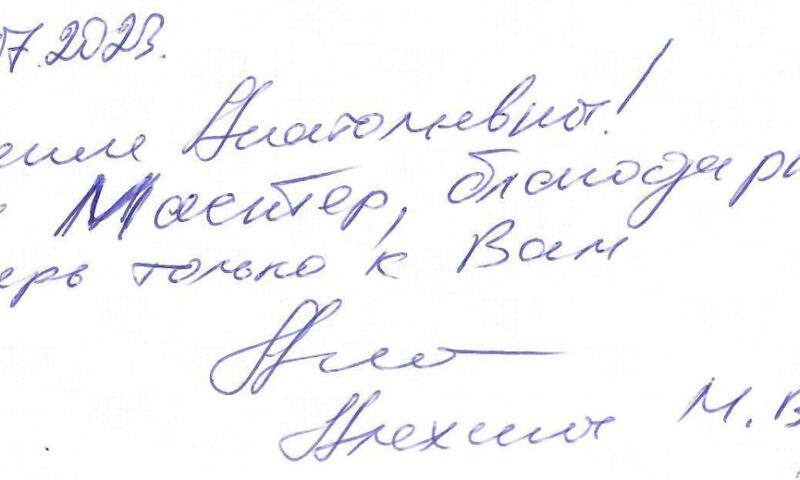 07.2023.
Анатольевич!
Мастер, благодар
ерь только к Вам
Алехина М.В